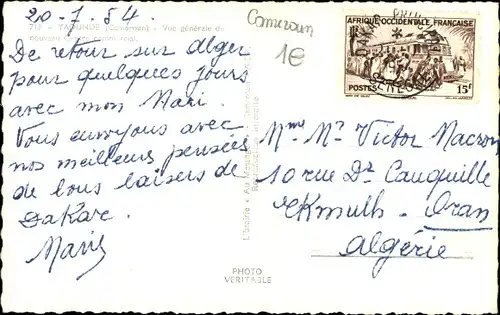 20-7.54.
Cameroun
1€
717 - YAOUNDÉ (Cameroun) - Vue générale du
De retour sur Alger
pour quelques jours
avec mon Mari.
Vous envoyons avec
nos meilleurs pensées
de bons baisers de
Dakar.
Marie
AFRIQUE OCCIDENTALE FRANÇAISE
POSTES
15F
Mme Mr Victor Macron
10 rue Dr Cauquille
Eckmulh - Oran
Algérie
PHOTO
VÉRITABLE